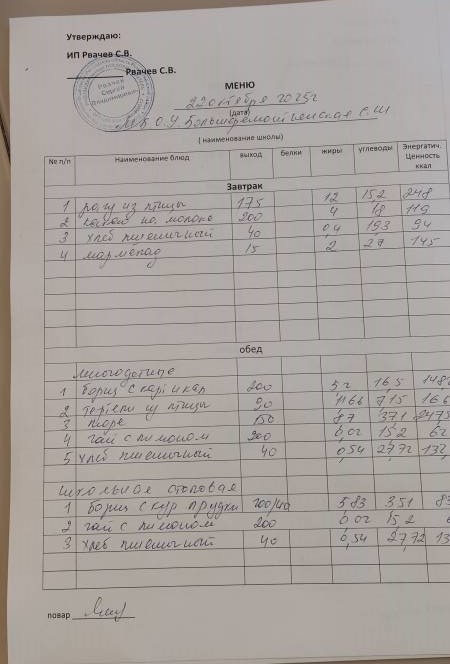 Утверждаю:
ИП Рвачев С.В.
Рвачев С.В.
Рвачев
Сергей
МЕНЮ
22 октября 2025г
(дата)
М.Б.О.У. Большеремонтненская СШ
( наименование школы)
№ п/п Наименование блюд выход белки жиры углеводы Энергатич. Ценность ккал
Завтрак
1 рагу из птицы 175 12 15,2 248
2 какой на молоке 200 4 18 119
3 хлеб пшеничный 40 0,4 19,3 94
4 мармелад 15 2 29 145
обед
многодетные
1 борщ с кар и кап 200 5,2 16,5 148
2 тефтели из птицы 90 7,15 166
3 пюре 150 8,7 37,1
4 чай с лимоном 200 0,02 15,2 62
5 хлеб пшеничный 40 0,54 27,72 132
школьная столовая
1 борщ с кур грудки 200/40 5,83 3,51 83
2 чай с лимоном 200 0,02 15,2 6
3 хлеб пшеничный 40 0,54 27,72 13
повар